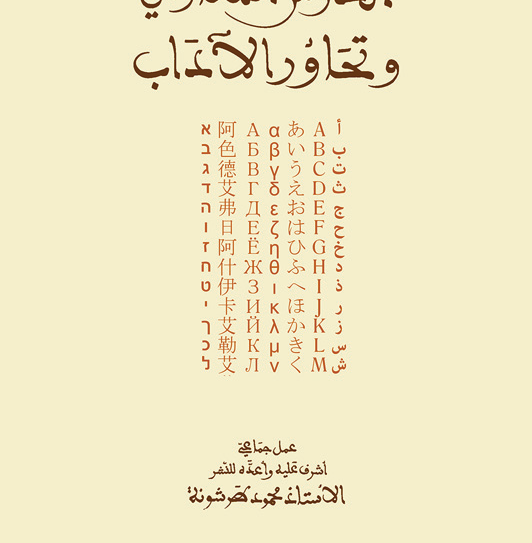 وتحَاوُر الآدَاب
א 阿 А α あ A أ
ב 色 Б β い B ب
ג 德 В γ う C ت
ד 艾 Г δ え D ث
ה 弗 Д ε お E ج
ו 日 Е ζ は F ح
ז 阿 Ё η ひ G خ
ח 什 Ж θ ふ H د
ט 伊 З ι へ I ذ
י 卡 И κ ほ J ر
ך 艾 Й λ か K ز
כ 勒 К μ き L س
ל 艾 Л ν く M ش
عمل جماعيّ
أشرف عليه وأعدّه للنشر
الأستاذ محمود طرشونة